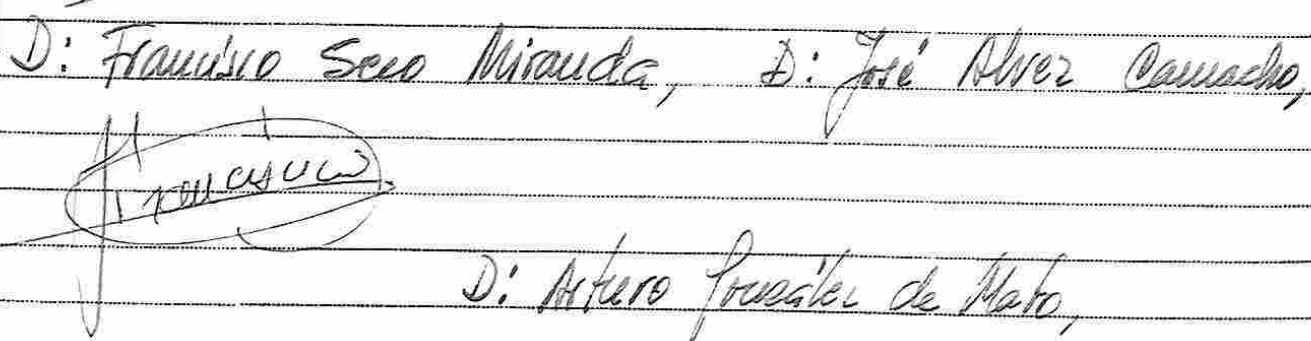 D: Francisco Seco Miranda, D: José Alvez Camacho,
Francisco
D: Arturo González de Mato,